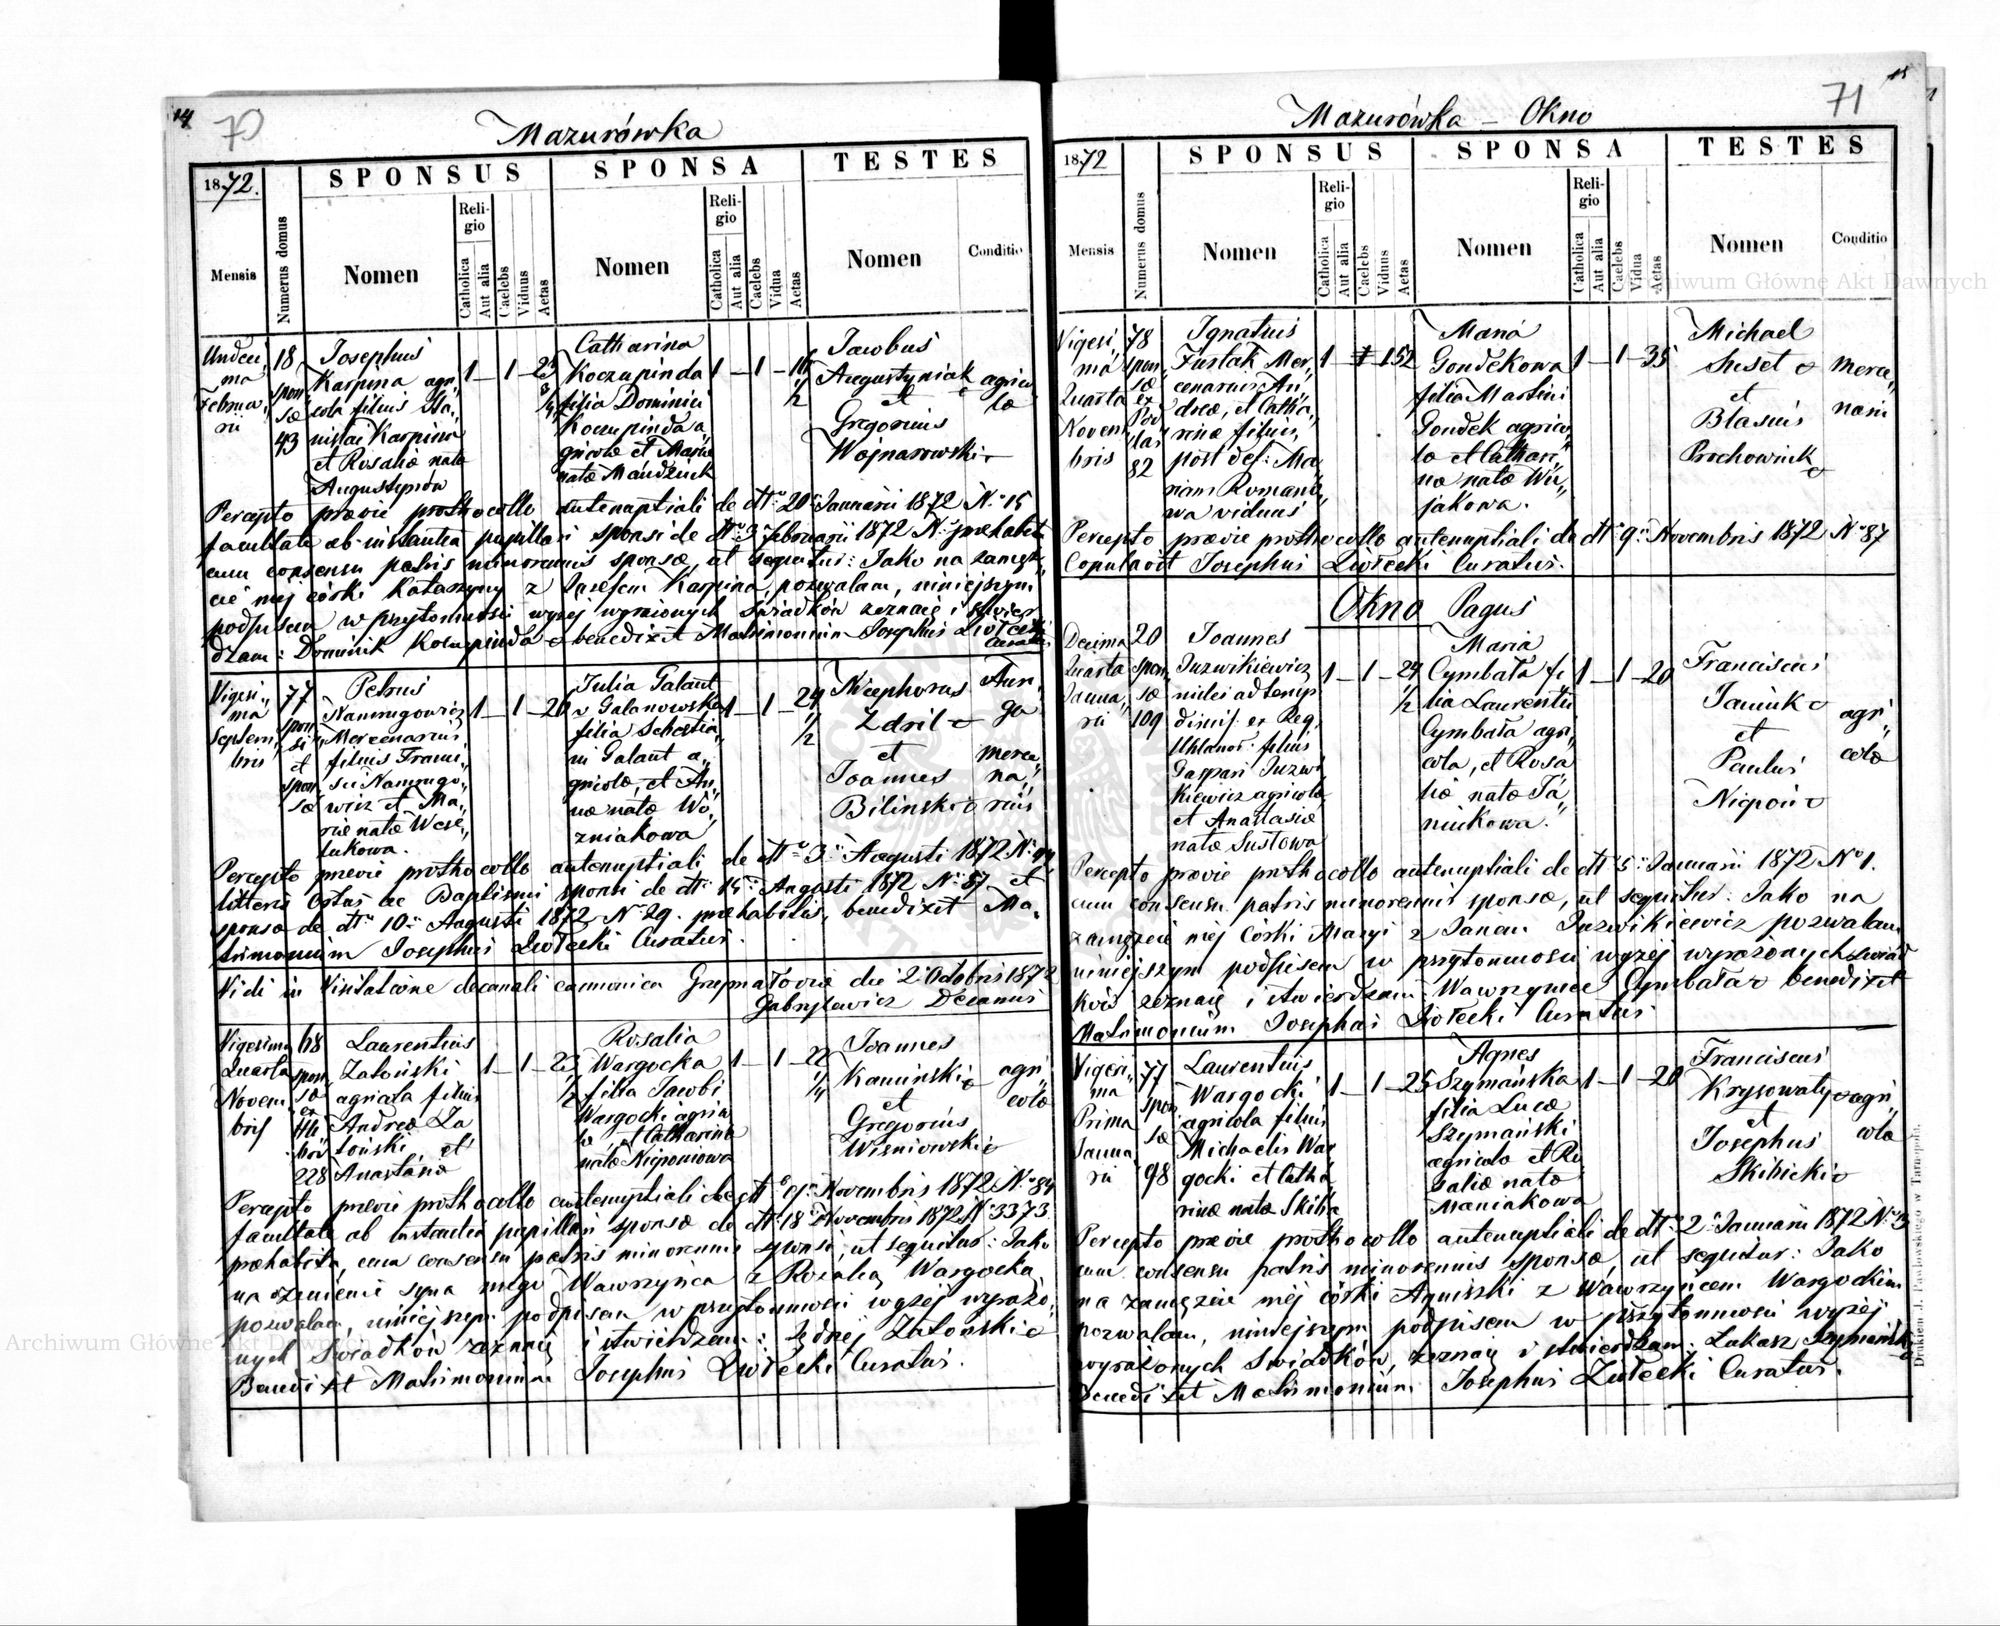 14
70
Mazurówka
1872.
SPONSUS
SPONSA
TESTES
Mensis
Numerus domus
Nomen
Religio
Catholica
Aut alia
Caelebs
Viduus
Aetas
Nomen
Religio
Catholica
Aut alia
Caelebs
Vidua
Aetas
Nomen
Conditio
Undeci„
ma
Februa„
rii
18
spon„
sæ
43
Josephus
Karpina agri„
cola filius Sta„
nislai Karpina
et Rosaliæ natæ
Augustynów
1 — 1 —
Catharina
Koczupinda
filia Dominici
Koczupinda a„
gricolæ et Mariæ
natæ Mandziuk
1 — 1 —
Jacobus
Augustyniak
et
Gregorius
Wojnarowski
agrico„
læ
Percepto prævie prothocollo antenuptiali de dtto 20 Januarii 1872 No 15
facultate ab instantia pupillari sponsi de dtto 3 Februarii 1872 No præhabita
cum consensu patris minorennis sponsæ, ut sequitur: Jako na zamęż„
cie mej córki Katarzyny z Józefem Karpina, pozwalam, niniejszym
podpisem w przytomności wyżej wyrażonych świadków zeznaję i stwier„
dzam: Dominik Koczupinda benedixit Matrimonium Josephus Ziółecki
Curatus
Vigesi„
ma
Septem„
bris
77
spon„
si
et
spon„
sæ
Petrus
Namugowicz
Mercenarius
filius Franci„
sci Namugo„
wicz et Ma„
riæ natæ Wese„
łukowa.
1 — 1 — 26
Julia Galant
v Galanowska
filia Sebastia„
ni Galant a„
gricolæ, et An„
næ natæ Wo„
źniakowa
1 — 1 — 24
1/2
Nicephorus
Zdril
et
Joannes
Biliński
Auri„
ga
merce„
na„
rius
Percepto prævie prothocollo antenuptiali de dtto 3 Augusti 1872 No
litteris ortus ac Baptismi sponsi de dtto 15 Augusti 1872 No 57 et
sponsæ de dtto 10 Augusti 1872 No 29. præhabitis, benedixit Ma„
trimonium Josephus Ziółecki Curatus.
Vidi in Visitatione decanali canonica Grzymałoviæ die 2 Octobris 1872
Gabryłewicz Decanus
Vigesima
Quarta
Novem„
bris
68
spon„
sæ
ex
228
Laurentius
Załoński
agricola filius
Andreæ Za
łoński et
Anastasiæ
1 — 1 — 23
1/2
Rosalia
Wargocka
filia Jacobi
Wargocki agrico
læ et Catharinæ
natæ Nieponiowa
1 — 1 — 22
1/4
Joannes
Kamiński
et
Gregorius
Wiśniowski
agri„
colæ
Percepto prævie prothocollo antenuptiali de dtto 9 Novembris 1872 No 84
facultate ab instantia pupillari sponsæ de dtto 18 Novembris 1872 No 3373
præhabita, cum consensu patris minorennis sponsi, ut sequitur: Jako
na ożenienie syna mego Wawrzyńca z Rozalią Wargocką
pozwalam, niniejszym podpisem w przytomności wyżej wyrażo„
nych świadków zeznaję i stwierdzam: Jędrzej Załoński
Benedixit Matrimonium Josephus Ziółecki Curatus.
15
71
Mazurówka — Okno
1872
SPONSUS
SPONSA
TESTES
Mensis
Numerus domus
Nomen
Religio
Catholica
Aut alia
Caelebs
Viduus
Aetas
Nomen
Religio
Catholica
Aut alia
Caelebs
Vidua
Aetas
Nomen
Conditio
Vigesi„
ma
Quarta
Novem„
bris
78
spon„
sæ
ex
82
Ignatius
Fustak Mer„
cenarius An„
dreæ, et Catha„
rinæ filius,
post def: Ma„
riam Romano„
wa viduus
1 — 1 52
Maria
Gondekowa
filia Martini
Gondek agrico„
læ et Cathari„
næ natæ Wu„
jakowa.
1 — 1 — 35
Michael
Suset
et
Blasius
Prochownik
merce„
narii
Percepto prævie prothocollo antenuptiali de dtto 9 Novembris 1872 No 87
Copulavit Josephus Ziółecki Curatus.
Okno Pagus
Decima
Quarta
Janua„
rii
20
spon„
sæ
109
Joannes
Juzwikiewicz
miles ad temp
dimis. ex Reg.
Uhlanor. filius
Gaspari Juzwi
kiewicz agricolæ
et Anastasiæ
natæ Sustowa
1 — 1 — 24
1/2
Maria
Cymbała fi
lia Laurentii
Cymbała agri„
colæ, et Rosa
liæ natæ Ja„
niukowa.
1 — 1 — 20
Franciscus
Janiuk
et
Paulus
Niepoń
agri„
colæ
Percepto prævie prothocollo antenuptiali de dtto 5 Januarii 1872 No 1.
cum consensu patris minorennis sponsæ, ut sequitur: Jako na
zamęzcie mej Córki Maryi z Janem Juzwikiewicz pozwalam
niniejszym podpisem w przytomności wyżej wyrażonych świad
ków zeznaję i stwierdzam: Wawrzyniec Cymbała benedixit
Matrimonium Josephus Ziółecki Curatus
Vigesi„
ma
Prima
Janua„
rii
77
spon„
sæ
98
Laurentius
Wargocki
agricola filius
Michaelis War
gocki et Catha
rinæ natæ Skiba
1 — 1 — 25
Agnes
Szymańska
filia Lucæ
Szymański
agricolæ et Ro
saliæ natæ
Maniakowa
1 — 1 — 20
Franciscus
Krysowaty
et
Josephus
Skibicki
agri„
colæ
Percepto prævie prothocollo antenuptiali de dtto 2 Januarii 1872 No 3
cum consensu patris minorennis sponsæ, ut sequitur: Jako
na zamęzcie méj córki Agnieszki z Wawrzyńcem Wargockim
pozwalam, niniejszym podpisem w przytomności wyżej
wyrażonych świadków, zeznaję i stwierdzam: Łukasz Szymański
Benedixit Matrimonium Josephus Ziółecki Curatus.
Drukiem J. Pawłowskiego w Tarnopolu.
Archiwum Główne Akt Dawnych
Archiwum Główne Akt Dawnych